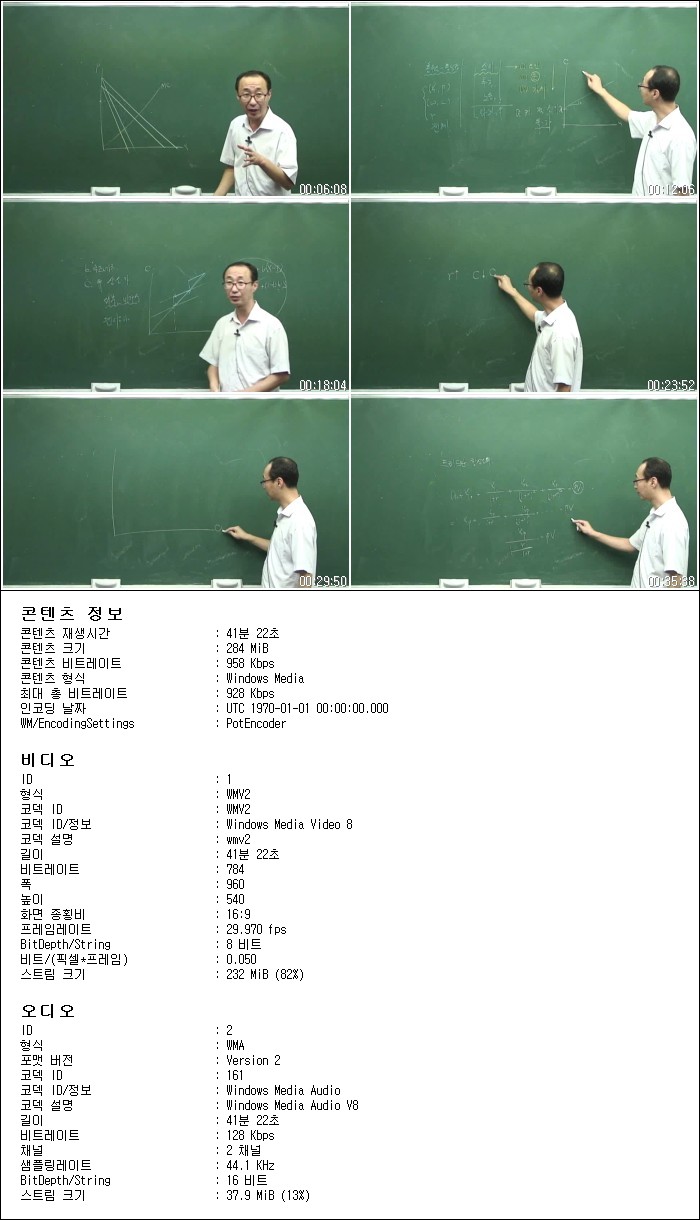 00:06:08
00:12:06
00:18:04
00:23:52
00:29:50
00:35:38
콘텐츠 정보
콘텐츠 재생시간 : 41분 22초
콘텐츠 크기 : 284 MiB
콘텐츠 비트레이트 : 958 Kbps
콘텐츠 형식 : Windows Media
최대 총 비트레이트 : 928 Kbps
인코딩 날짜 : UTC 1970-01-01 00:00:00.000
WM/EncodingSettings : PotEncoder
비디오
ID : 1
형식 : WMV2
코덱 ID : WMV2
코덱 ID/정보 : Windows Media Video 8
코덱 설명 : wmv2
길이 : 41분 22초
비트레이트 : 784
폭 : 960
높이 : 540
화면 종횡비 : 16:9
프레임레이트 : 29.970 fps
BitDepth/String : 8 비트
비트/(픽셀*프레임) : 0.050
스트림 크기 : 232 MiB (82%)
오디오
ID : 2
형식 : WMA
포맷 버전 : Version 2
코덱 ID : 161
코덱 ID/정보 : Windows Media Audio
코덱 설명 : Windows Media Audio V8
길이 : 41분 22초
비트레이트 : 128 Kbps
채널 : 2 채널
샘플링레이트 : 44.1 KHz
BitDepth/String : 16 비트
스트림 크기 : 37.9 MiB (13%)